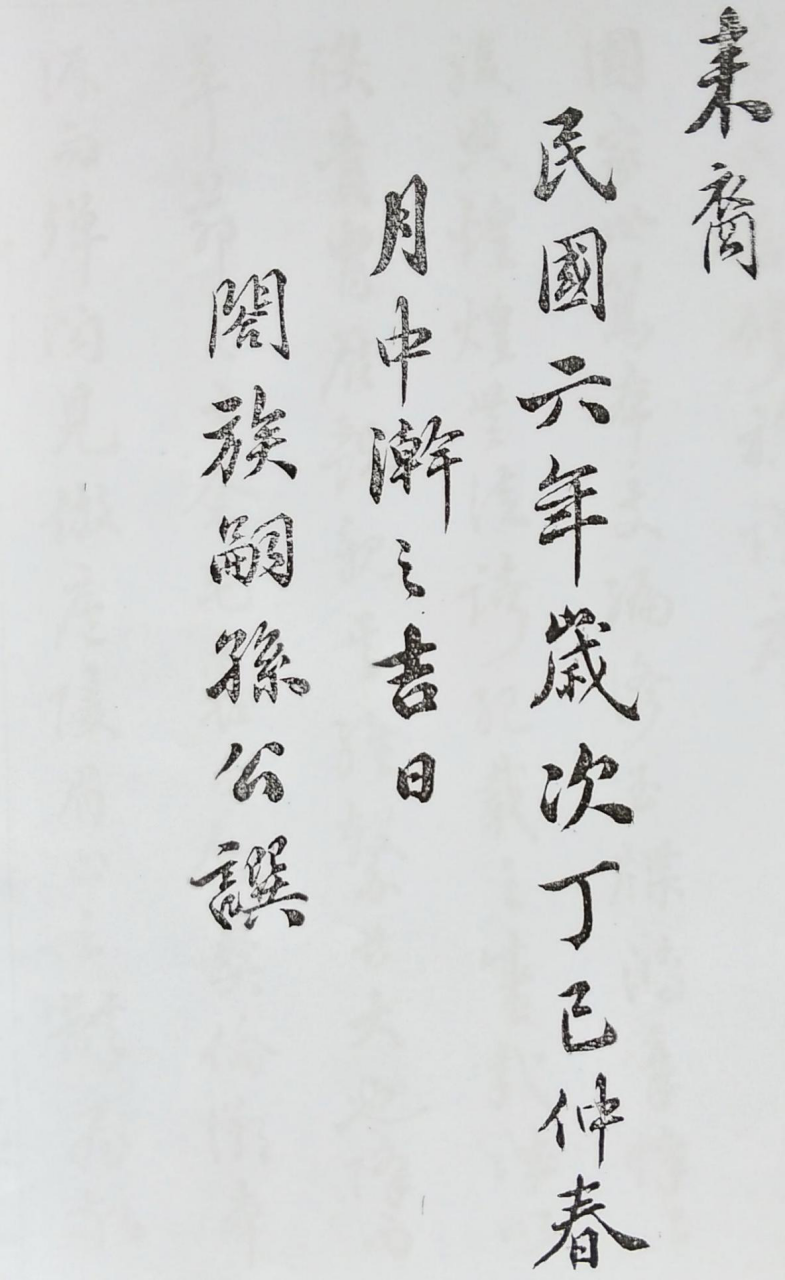 耒裔
民國六年歲次丁巳仲春
月中澣之吉日
閤族嗣孫公譔